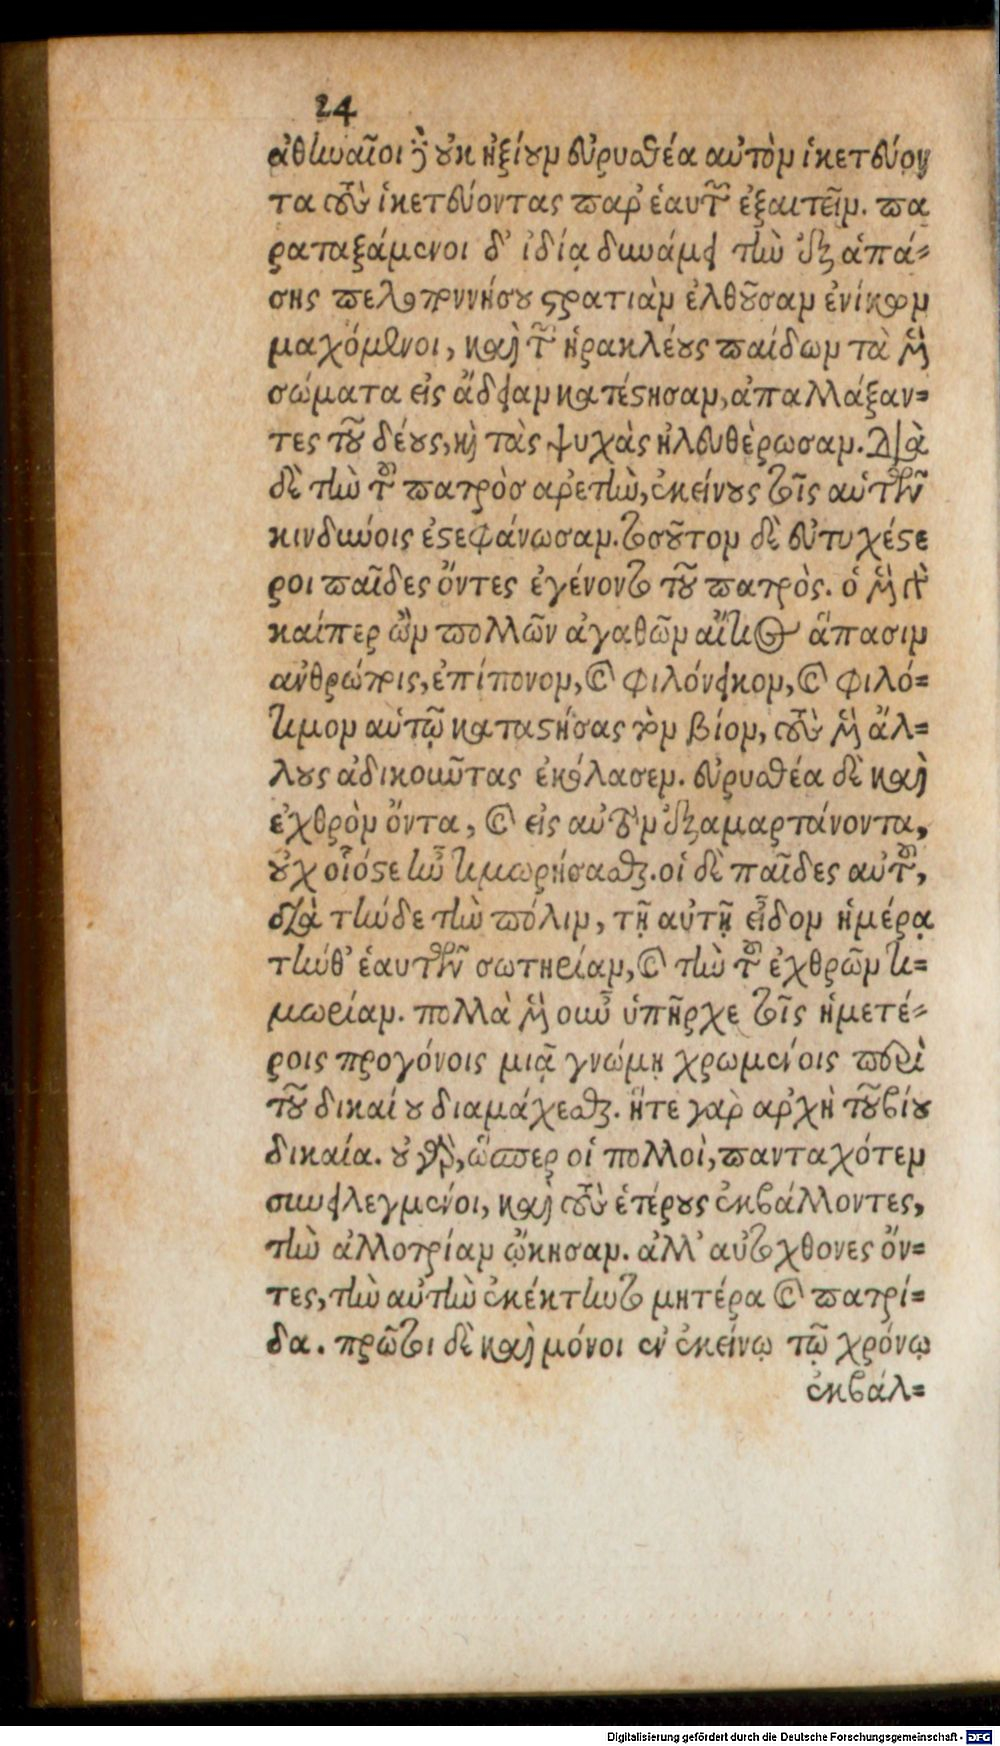 24
ἀθηναῖοι δὲ οὐκ ἠξίουν εὐρυσθέα αὐτὸν ἱκετεύον
τα τοὺς ἱκετεύοντας παρ' ἑαυτῶν ἐξαιτεῖν. πα
ραταξάμενοι δ' ἰδίᾳ δυνάμει τὴν ἐξ ἁπά-
σης πελοποννήσου στρατιὰν ἐλθοῦσαν ἐνίκων
μαχόμενοι, καὶ τῶν ἡρακλέους παίδων τὰ μὲν
σώματα εἰς ἄδειαν κατέστησαν, ἀπαλλάξαν-
τες τοῦ δέους, καὶ τὰς ψυχὰς ἠλευθέρωσαν. Διὰ
δὲ τὴν τοῦ πατρὸσ αρετὴν, ἐκείνους τοῖς αὑτῶν
κινδύνοις ἐστεφάνωσαν. τοσοῦτον δὲ εὐτυχέστε
ροι παῖδες ὄντες ἐγένοντο τοῦ πατρὸς. ὁ μὲν γὰρ
καίπερ ὢν πολλῶν ἀγαθῶν αἴτιος ἅπασιν
ανθρώποις, ἐπίπονον, καὶ φιλόνεικον, καὶ φιλό-
τιμον αὑτῷ καταστήσας τὸν βίον, τοὺς μὲν ἄλ-
λους ἀδικοῦντας ἐκόλασεν. εὐρυσθέα δὲ καὶ
ἐχθρὸν ὄντα, καὶ εἰς αὐτὸν ἐξαμαρτάνοντα,
οὐχ οἷόστε ἦν τιμωρήσασθαι. οἱ δὲ παῖδες αὐτοῦ,
διὰ τήνδε τὴν πόλιν, τῇ αὐτῇ εἶδον ἡμέρᾳ
τήνθ' ἑαυτῶν σωτηρίαν, καὶ τὴν τῶν ἐχθρῶν τι-
μωρίαν. πολλὰ μὲν οὖν ὑπῆρχε τοῖς ἡμετέ-
ροις προγόνοις μιᾷ γνώμῃ χρωμένοις περὶ
τοῦ δικαίου διαμάχεσθαι. ἥτε γαρ αρχὴ τοῦ βίου
δικαία. οὐ γὰρ, ὥσπερ οἱ πολλοὶ, πανταχότεν
συνειλεγμένοι, καὶ τοὺς ἑτέρους ἐκβάλλοντες,
τὴν ἀλλοτρίαν ᾤκησαν. ἀλλ' αὐτοχθονες ὄν-
τες, τὴν αὐτὴν ἐκέκτηντο μητέρα καὶ πατρί-
δα. πρῶτοι δὲ καὶ μόνοι ἐν ἐκείνῳ τῷ χρόνῳ
ἐκβάλ-
Digitalisierung gefördert durch die Deutsche Forschungsgemeinschaft - DFG